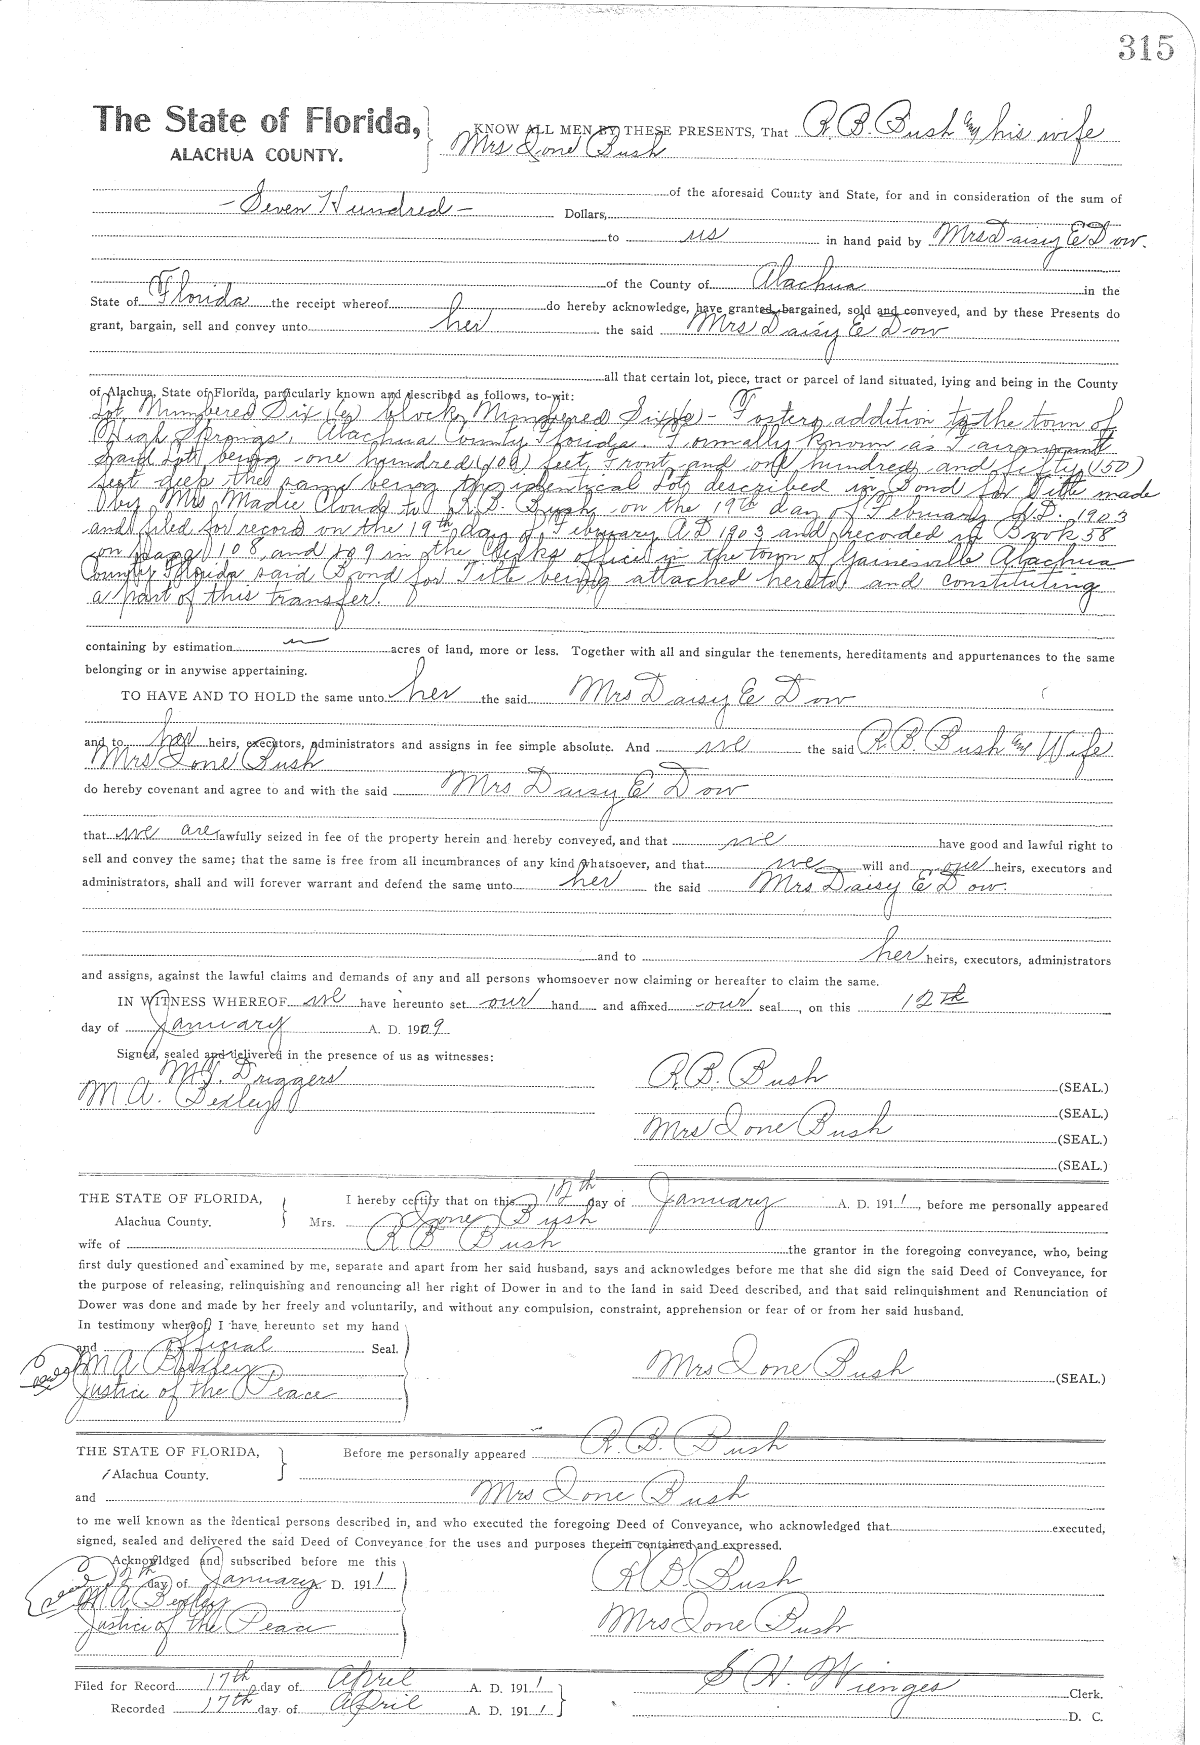 315
The State of Florida,
ALACHUA COUNTY.
KNOW ALL MEN BY THESE PRESENTS, That R. B. Bush and his wife
Mrs Ione Bush
of the aforesaid County and State, for and in consideration of the sum of
- Seven Hundred - Dollars,
to us in hand paid by Mrs Daisy E Dow.
of the County of Alachua in the
State of Florida the receipt whereof do hereby acknowledge, have granted, bargained, sold and conveyed, and by these Presents do
grant, bargain, sell and convey unto her the said Mrs Daisy E Dow
all that certain lot, piece, tract or parcel of land situated, lying and being in the County
of Alachua, State of Florida, particularly known and described as follows, to-wit:
Lot Numbered Six (6) block Numbered Six (6) - Fosters addition to the town of
High Springs, Alachua County Florida. Formally known as Fairmount
said Lot being one hundred (100) feet Front and one hundred and fifty (150)
feet deep the same being the identical Lot described in Bond for Title made
by Mrs Madie Cloud to R. B. Bush on the 19th day of February A.D. 1903
and filed for record on the 19th day of February A D 1903 and recorded in Book 58
on page 108 and 109 in the Clerks office in the town of Gainesville Alachua
County Florida said Bond for Title being attached hereto and constituting
a part of this transfer.
containing by estimation acres of land, more or less. Together with all and singular the tenements, hereditaments and appurtenances to the same
belonging or in anywise appertaining.
TO HAVE AND TO HOLD the same unto her the said Mrs Daisy E Dow
and to her heirs, executors, administrators and assigns in fee simple absolute. And we the said R. B. Bush and Wife
Mrs Ione Bush
do hereby covenant and agree to and with the said Mrs Daisy E Dow
that we are lawfully seized in fee of the property herein and hereby conveyed, and that we have good and lawful right to
sell and convey the same; that the same is free from all incumbrances of any kind whatsoever, and that we will and our heirs, executors and
administrators, shall and will forever warrant and defend the same unto her the said Mrs Daisy E Dow.
and to her heirs, executors, administrators
and assigns, against the lawful claims and demands of any and all persons whomsoever now claiming or hereafter to claim the same.
IN WITNESS WHEREOF we have hereunto set our hand and affixed our seal, on this 12th
day of January A. D. 1909
Signed, sealed and delivered in the presence of us as witnesses:
M. J. Driggers
M. A. Bexley
R. B. Bush (SEAL.)
(SEAL.)
Mrs Ione Bush (SEAL.)
(SEAL.)
THE STATE OF FLORIDA,
Alachua County.
I hereby certify that on this 12th day of January A. D. 1911, before me personally appeared
Mrs. Ione Bush
wife of R B Bush the grantor in the foregoing conveyance, who, being
first duly questioned and examined by me, separate and apart from her said husband, says and acknowledges before me that she did sign the said Deed of Conveyance, for
the purpose of releasing, relinquishing and renouncing all her right of Dower in and to the land in said Deed described, and that said relinquishment and Renunciation of
Dower was done and made by her freely and voluntarily, and without any compulsion, constraint, apprehension or fear of or from her said husband.
In testimony whereof, I have hereunto set my hand
and official Seal.
M A Bexley
Justice of the Peace
Seal
Mrs Ione Bush (SEAL.)
THE STATE OF FLORIDA,
Alachua County.
Before me personally appeared R. B. Bush
and Mrs Ione Bush
to me well known as the identical persons described in, and who executed the foregoing Deed of Conveyance, who acknowledged that executed,
signed, sealed and delivered the said Deed of Conveyance for the uses and purposes therein contained and expressed.
Acknowldged and subscribed before me this
12th day of January A. D. 1911
M A Bexley
Justice of the Peace
Seal
R B. Bush
Mrs Ione Bush
Filed for Record 17th day of April A. D. 1911
Recorded 17th day of April A. D. 1911
S. H. Wienges Clerk.
D. C.